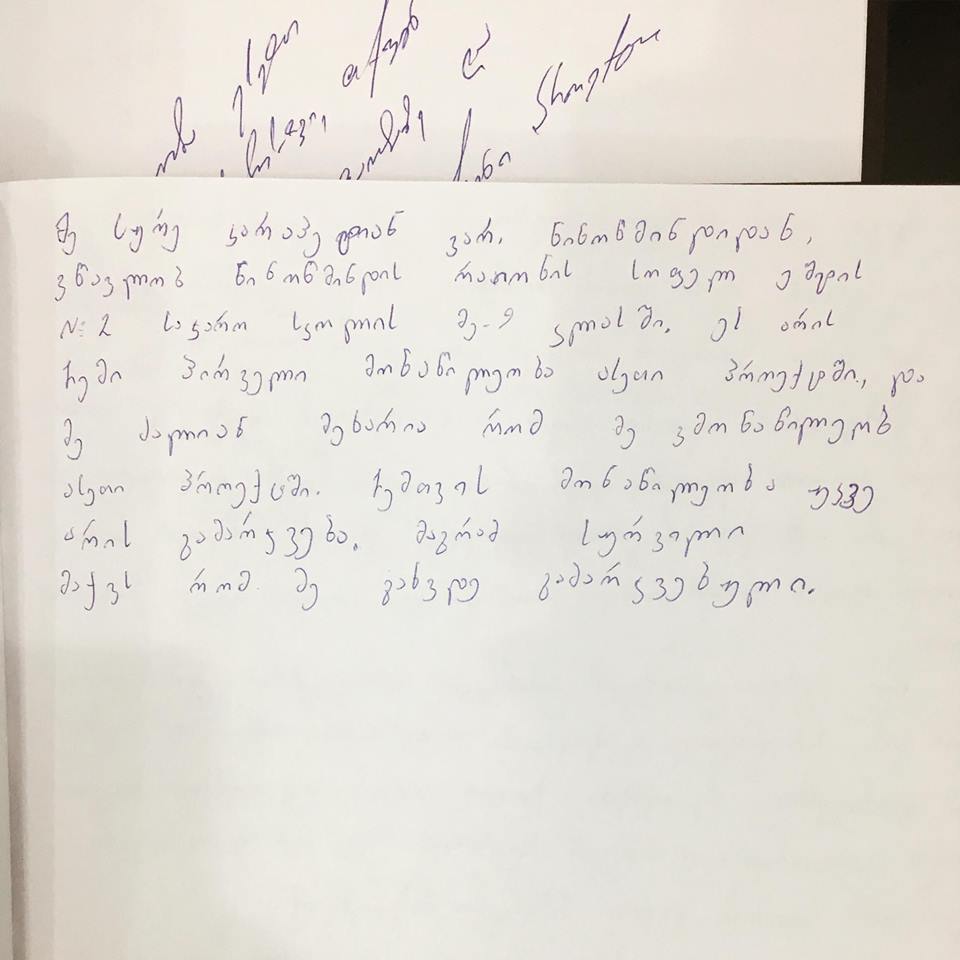 და
მე სურე კარაპეტიან ვარ. ნინოწმინდიდან,
ვწავლობ ნინოწმინდის რაიონის სოფელ ეშტის
№ 2 საჯარო სკოლის მე-9 კლასში. ეს არის
ჩემი პირველი მონაწილეობა ასეთი პროექტში, და
მე ძალიან მეხარია რომ მე ვმონაწილეობ
ასეთი პროექტში. ჩემთვის მონაწილეობა უკვე
არის გამარჯვება. მაგრამ სურვილი
მაქვს რომ მე გახვდე გამარჯვებული.